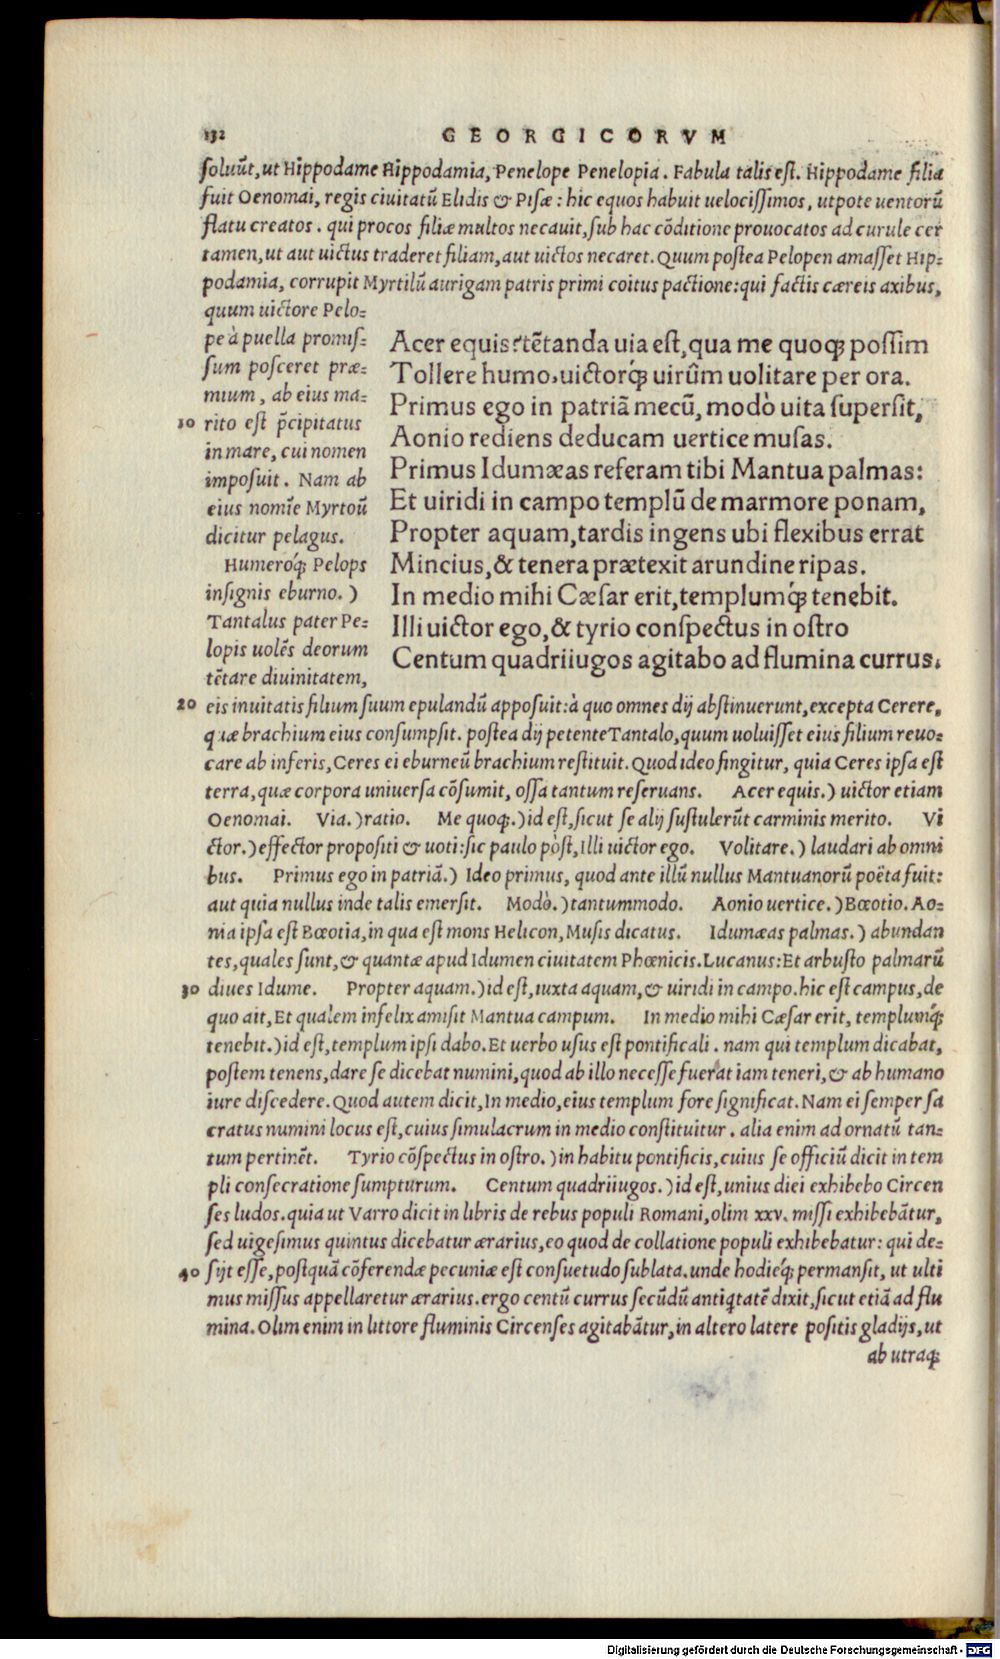 132
GEORGICORVM
soluūt, ut Hippodame Hippodamia, Penelope Penelopia. Fabula talis est. Hippodame filia
fuit Oenomai, regis ciuitatū Elidis & Pisæ: hic equos habuit uelocissimos, utpote uentorū
flatu creatos. qui procos filiæ multos necauit, sub hac cōditione prouocatos ad curule cer
tamen, ut aut uictus traderet filiam, aut uictos necaret. Quum postea Pelopen amasset Hip=
podamia, corrupit Myrtilū aurigam patris primi coitus pactione: qui factis cæreis axibus,
quum uictore Pelo=
pe à puella promis=
sum posceret præ=
mium, ab eius ma=
10 rito est p̄cipitatus
in mare, cui nomen
imposuit. Nam ab
eius nomīe Myrtoū
dicitur pelagus.
Humeroq́; Pelops
insignis eburno.)
Tantalus pater Pe=
lopis uolēs deorum
tētare diuinitatem,
Acer equis? tētanda uia est, qua me quoq; possim
Tollere humo, uictorq́; uirûm uolitare per ora.
Primus ego in patriā mecū, modò uita supersit,
Aonio rediens deducam uertice musas.
Primus Idumæas referam tibi Mantua palmas:
Et uiridi in campo templū de marmore ponam,
Propter aquam, tardis ingens ubi flexibus errat
Mincius, & tenera prætexit arundine ripas.
In medio mihi Cæsar erit, templumq́; tenebit.
Illi uictor ego, & tyrio conspectus in ostro
Centum quadriiugos agitabo ad flumina currus.
20 eis inuitatis filium suum epulandū apposuit: à quo omnes dij abstinuerunt, excepta Cerere,
quæ brachium eius consumpsit. postea dij petente Tantalo, quum uoluisset eius filium reuo=
care ab inferis, Ceres ei eburneū brachium restituit. Quod ideo fingitur, quia Ceres ipsa est
terra, quæ corpora uniuersa cōsumit, ossa tantum reseruans. Acer equis.) uictor etiam
Oenomai. Via.) ratio. Me quoq;.) id est, sicut se alij sustulerūt carminis merito. Vi
ctor.) effector propositi & uoti: sic paulo pòst, Illi uictor ego. Volitare.) laudari ab omni
bus. Primus ego in patriā.) Ideo primus, quod ante illū nullus Mantuanorū poëta fuit:
aut quia nullus inde talis emersit. Modò.) tantummodo. Aonio uertice.) Bœotio. Ao=
nia ipsa est Bœotia, in qua est mons Helicon, Musis dicatus. Idumæas palmas.) abundan
tes, quales sunt, & quantæ apud Idumen ciuitatem Phœnicis. Lucanus: Et arbusto palmarū
30 diues Idume. Propter aquam.) id est, iuxta aquam, & uiridi in campo. hic est campus, de
quo ait, Et qualem infelix amisit Mantua campum. In medio mihi Cæsar erit, templumq́;
tenebit.) id est, templum ipsi dabo. Et uerbo usus est pontificali. nam qui templum dicabat,
postem tenens, dare se dicebat numini, quod ab illo necesse fuerat iam teneri, & ab humano
iure discedere. Quod autem dicit, In medio, eius templum fore significat. Nam ei semper sa
cratus numini locus est, cuius simulacrum in medio constituitur. alia enim ad ornatū tan=
tum pertinēt. Tyrio cōspectus in ostro.) in habitu pontificis, cuius se officiū dicit in tem
pli consecratione sumpturum. Centum quadriiugos.) id est, unius diei exhibebo Circen
ses ludos. quia ut Varro dicit in libris de rebus populi Romani, olim xxv. missi exhibebātur,
sed uigesimus quintus dicebatur ærarius, eo quod de collatione populi exhibebatur: qui de=
40 sijt esse, postquā cōferendæ pecuniæ est consuetudo sublata. unde hodieq́; permansit, ut ulti
mus missus appellaretur ærarius. ergo centū currus secūdū antiq̄tatē dixit, sicut etiā ad flu
mina. Olim enim in littore fluminis Circenses agitabātur, in altero latere positis gladijs, ut
ab utraq;
Digitalisierung gefördert durch die Deutsche Forschungsgemeinschaft - DFG